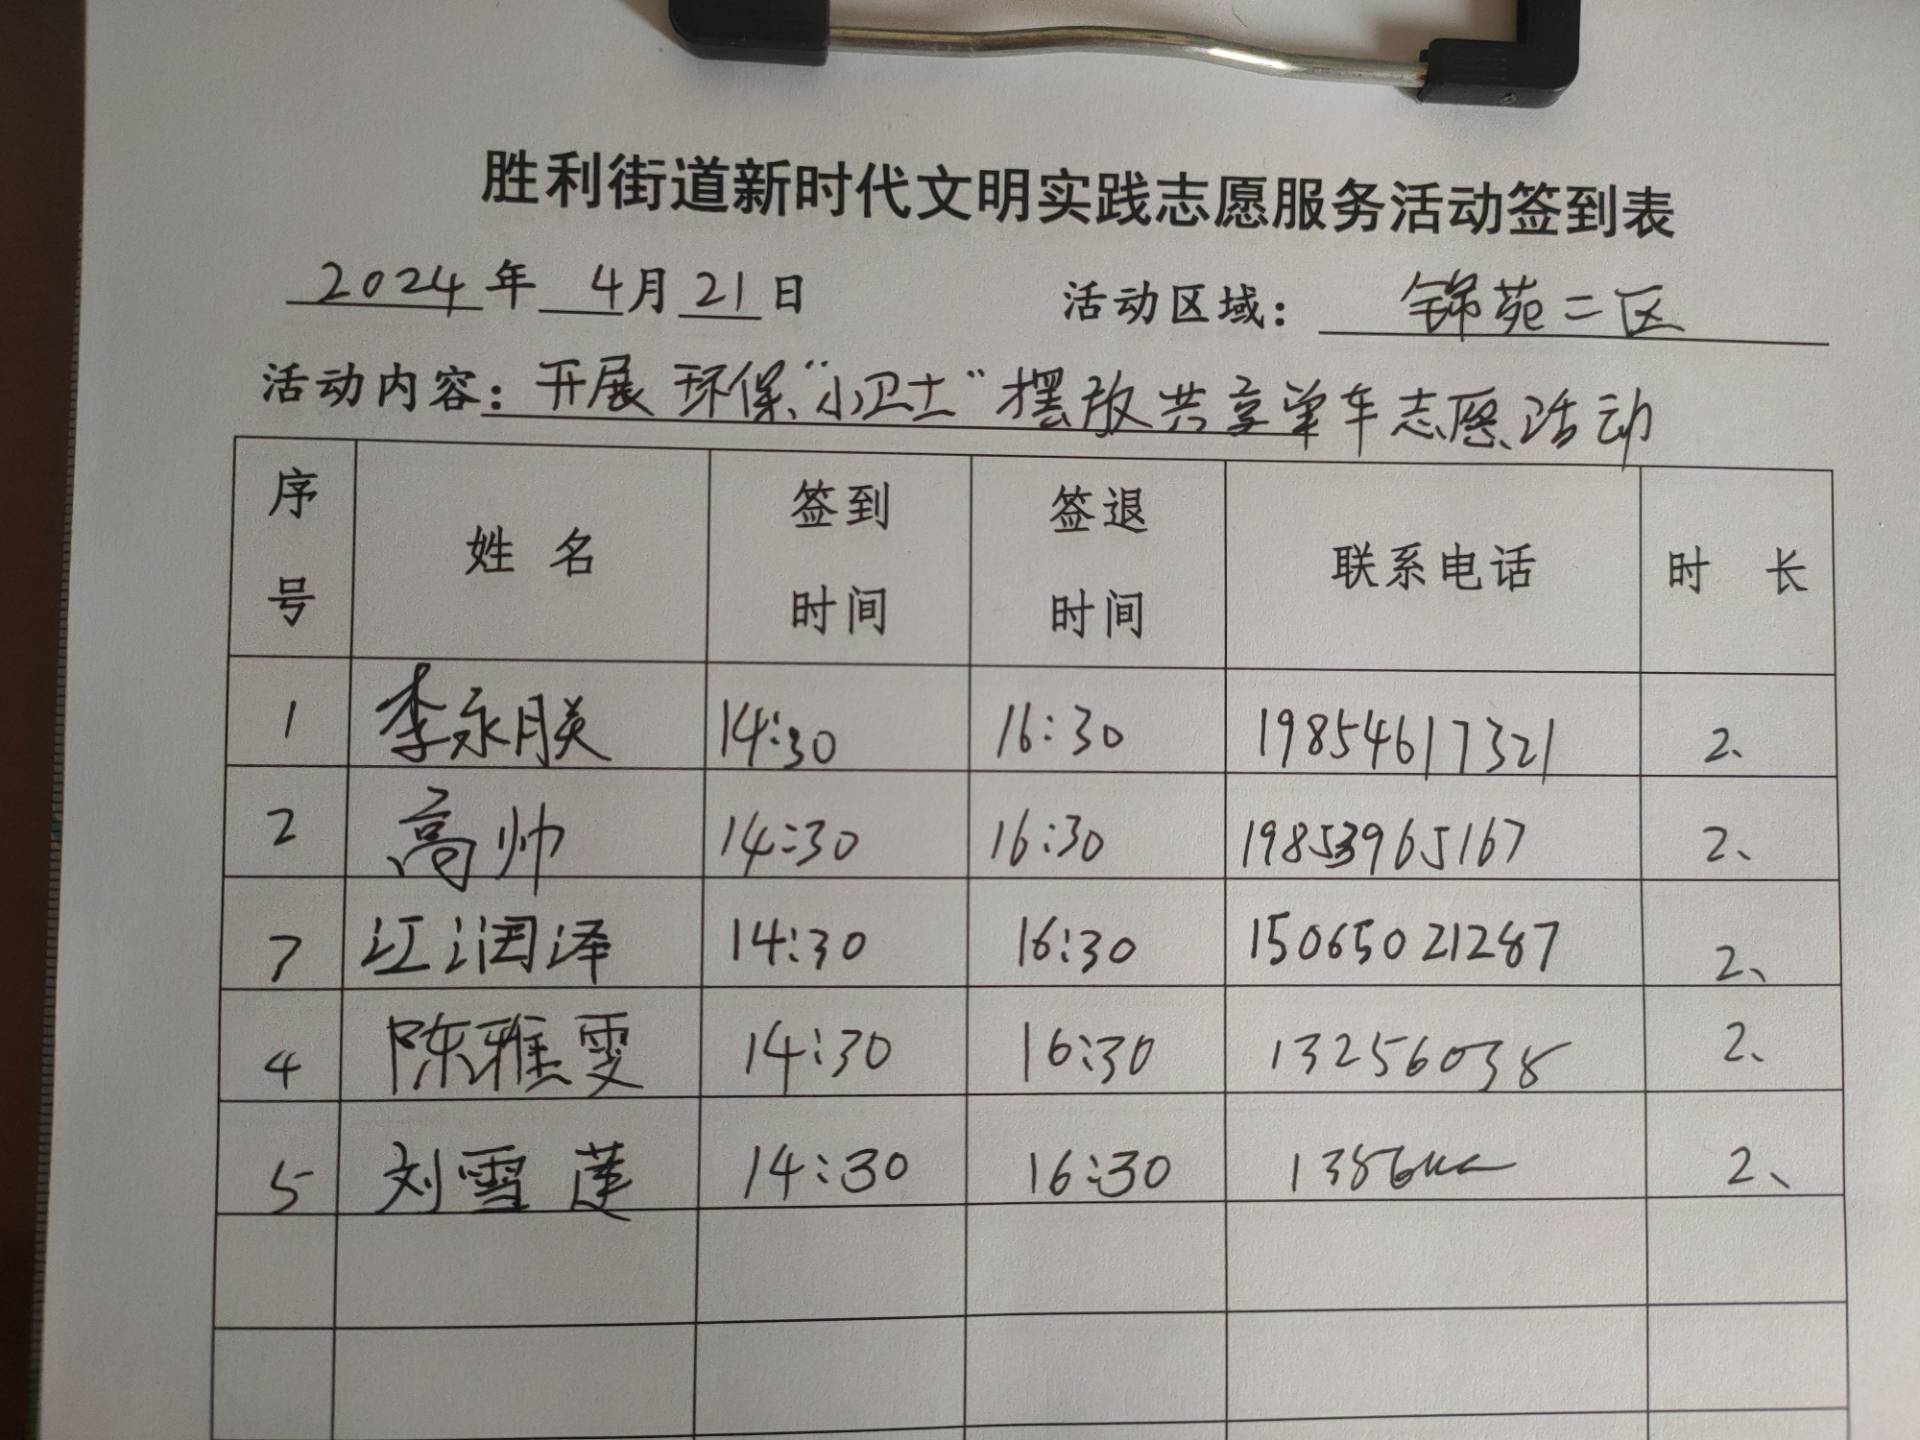 胜利街道新时代文明实践志愿服务活动签到表
2024年 4月21日 活动区域：锦苑二区
活动内容：开展环保“小卫士”摆放共享单车志愿活动
序号 姓名 签到时间 签退时间 联系电话 时长
1 李永朕 14:30 16:30 19854617321 2、
2 高帅 14:30 16:30 19853965167 2、
7 江润泽 14:30 16:30 15065021287 2、
4 陈雅雯 14:30 16:30 13256038 2、
5 刘雪莲 14:30 16:30 1386 2、